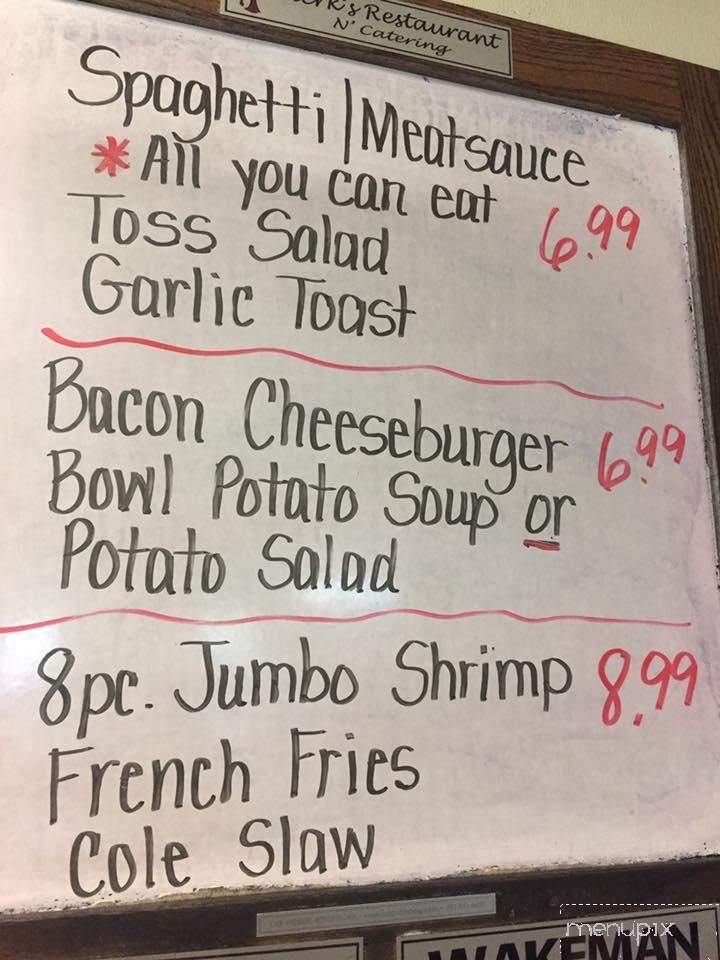 Restaurant
N' Catering
Spaghetti | Meatsauce
* All you can eat
6.99
Toss Salad
Garlic Toast
Bacon Cheeseburger 6.99
Bowl Potato Soup or
Potato Salad
8pc. Jumbo Shrimp 8.99
French Fries
Cole Slaw
menupix
WAKEMAN